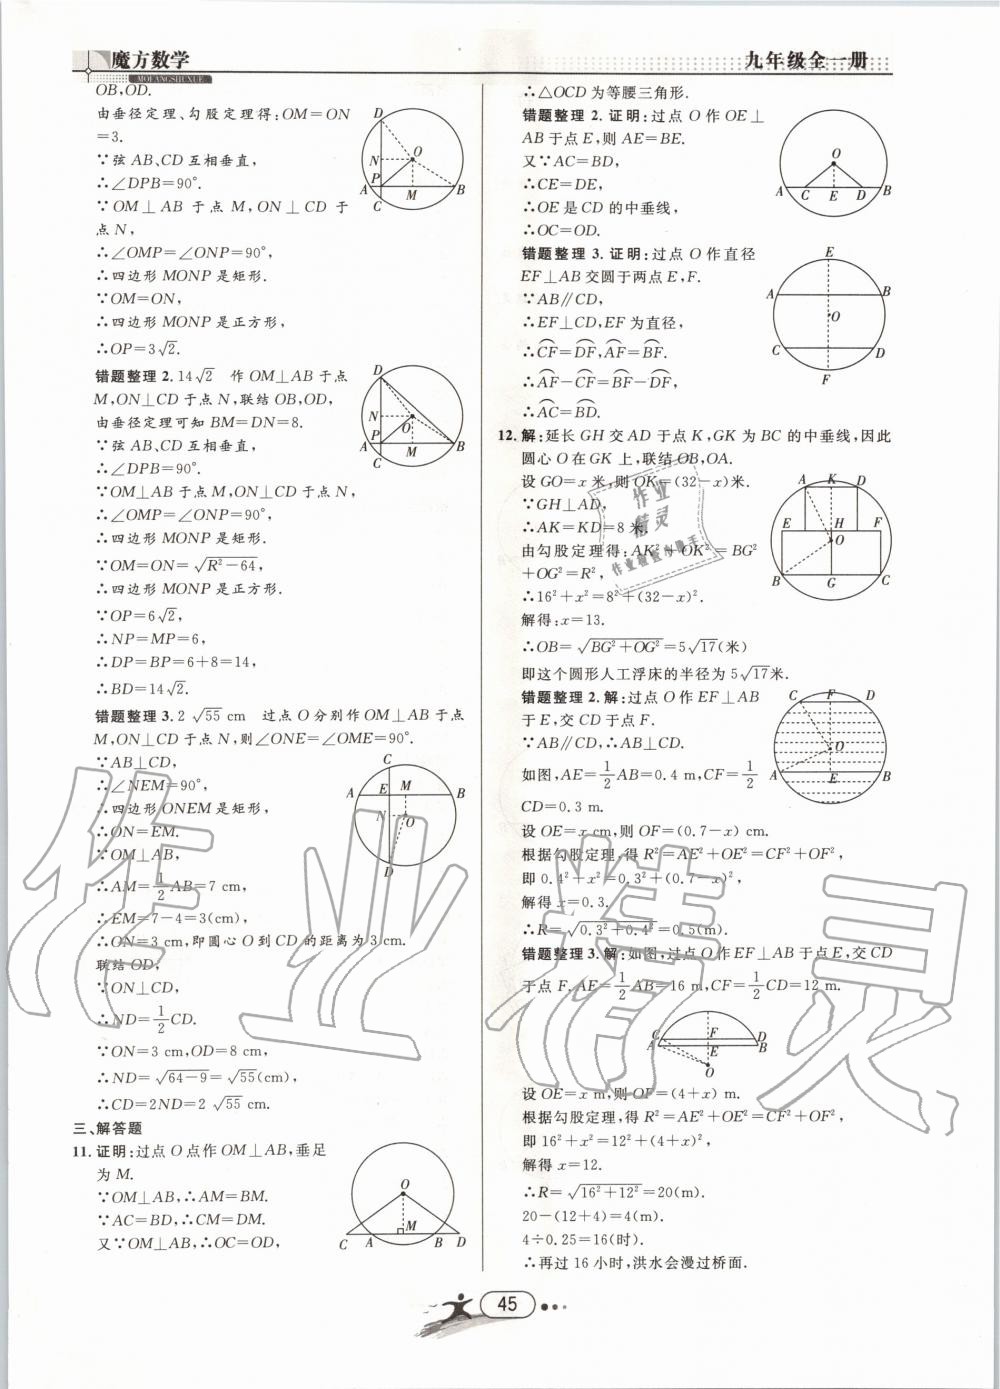 魔方数学
MOFANGSHUXUE
九年级全一册
OB,OD.
由垂径定理、勾股定理得:OM=ON
=3.
∵弦 AB、CD 互相垂直,
∴∠DPB=90°.
∵OM⊥AB 于点 M,ON⊥CD 于
点 N,
∴∠OMP=∠ONP=90°.
∴四边形 MONP 是矩形.
∵OM=ON,
∴四边形 MONP 是正方形,
∴OP=3√2.
D
N
O
P
A
M
B
C
错题整理 2. 14√2 作 OM⊥AB 于点
M,ON⊥CD 于点 N,联结 OB,OD,
由垂径定理可知 BM=DN=8.
∵弦 AB、CD 互相垂直,
∴∠DPB=90°.
∵OM⊥AB 于点 M,ON⊥CD 于点 N,
∴∠OMP=∠ONP=90°.
∴四边形 MONP 是矩形.
∵OM=ON=√(R²-64),
∴四边形 MONP 是正方形.
∵OP=6√2,
∴NP=MP=6,
∴DP=BP=6+8=14,
∴BD=14√2.
D
N
O
P
A
M
B
C
错题整理 3. 2√55 cm 过点 O 分别作 OM⊥AB 于点
M,ON⊥CD 于点 N,则∠ONE=∠OME=90°.
∵AB⊥CD,
∴∠NEM=90°,
∴四边形 ONEM 是矩形,
∴ON=EM.
∵OM⊥AB,
∴AM=1/2AB=7 cm,
∴EM=7-4=3(cm),
∴ON=3 cm,即圆心 O 到 CD 的距离为 3 cm.
联结 OD,
∵ON⊥CD,
∴ND=1/2CD.
∵ON=3 cm,OD=8 cm,
∴ND=√(64-9)=√55(cm),
∴CD=2ND=2√55 cm.
C
A
E
M
B
N
O
D
三、解答题
11. 证明:过点 O 点作 OM⊥AB,垂足
为 M.
∵OM⊥AB,∴AM=BM.
∵AC=BD,∴CM=DM.
又∵OM⊥AB,∴OC=OD,
O
M
C
A
B
D
∴△OCD 为等腰三角形.
错题整理 2. 证明:过点 O 作 OE⊥
AB 于点 E,则 AE=BE.
又∵AC=BD,
∴CE=DE,
∴OE 是 CD 的中垂线,
∴OC=OD.
O
A
C
E
D
B
错题整理 3. 证明:过点 O 作直径
EF⊥AB 交圆于两点 E,F.
∵AB∥CD,
∴EF⊥CD,EF 为直径,
∴⌒CF=⌒DF,⌒AF=⌒BF.
∴⌒AF-⌒CF=⌒BF-⌒DF,
∴⌒AC=⌒BD.
E
A
B
O
C
D
F
12. 解:延长 GH 交 AD 于点 K,GK 为 BC 的中垂线,因此
圆心 O 在 GK 上,联结 OB,OA.
设 GO=x 米,则 OK=(32-x)米.
∵GH⊥AD,
∴AK=KD=8 米.
由勾股定理得:AK²+OK²=BG²
+OG²=R²,
∴16²+x²=8²+(32-x)².
解得:x=13.
∴OB=√(BG²+OG²)=5√17(米)
即这个圆形人工浮床的半径为 5√17米.
A
K
D
E
H
F
O
B
G
C
错题整理 2. 解:过点 O 作 EF⊥AB
于 E,交 CD 于点 F.
∵AB∥CD,∴AB⊥CD.
如图,AE=1/2AB=0.4 m,CF=1/2
CD=0.3 m.
设 OE=x cm,则 OF=(0.7-x) cm.
根据勾股定理,得 R²=AE²+OE²=CF²+OF²,
即 0.4²+x²=0.3²+(0.7-x)²,
解得 x=0.3.
∴R=√(0.3²+0.4²)=0.5(m).
C
F
D
O
A
E
B
错题整理 3. 解:如图,过点 O 作 EF⊥AB 于点 E,交 CD
于点 F. AE=1/2AB=16 m,CF=1/2CD=12 m.
C
F
D
A
E
B
O
设 OE=x m,则 OF=(4+x) m.
根据勾股定理,得 R²=AE²+OE²=CF²+OF²,
即 16²+x²=12²+(4+x)²,
解得 x=12.
∴R=√(16²+12²)=20(m).
20-(12+4)=4(m).
4÷0.25=16(时).
∴再过 16 小时,洪水会漫过桥面.
作业
精灵
作业检查小助手
作业精灵
45